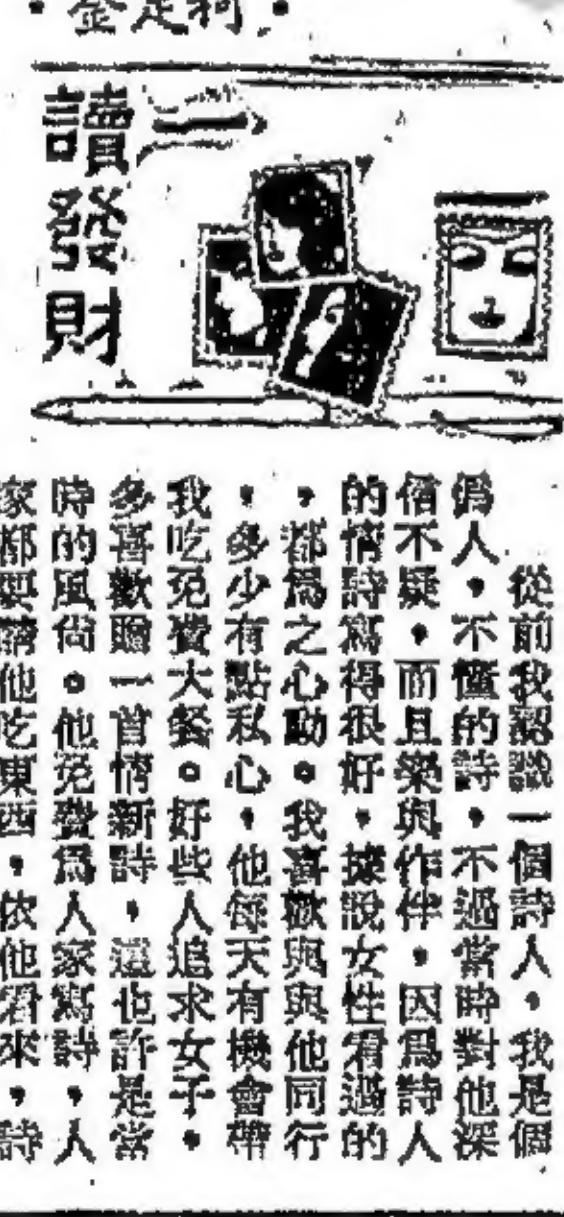 •金定柯•
讀發財
從前我認識一個詩人，我是個
偽人，不懂的詩，不過當時對他深
信不疑，而且樂與作伴，因爲詩人
的情詩寫得很好，據說女性看過的
，都爲之心動。我喜歡與與他同行
，多少有點私心，他每天有機會帶
我吃免費大餐。好些人追求女子，
多喜歡贈一首情新詩，這也許是當
時的風尚。他免費爲人家寫詩，人
家都要請他吃東西，依他看來，詩